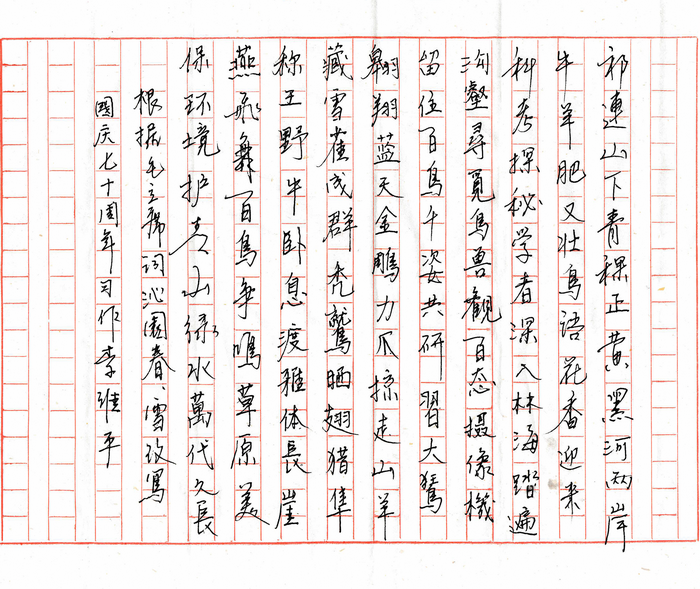 祁連山下青稞正黄黑河两岸
牛羊肥又壮鸟语花香迎来
科考探秘学者深入林海踏遍
沟壑尋覓鸟兽觀百态摄像機
留住百鸟千姿共研習大鵟
翱翔蓝天金雕力爪掠走山羊
藏雪雀成群秃鹫晒翅猎隼
称王野牛卧息渡雅体長崖
燕飛舞百鸟争鳴草原美
保环境护青山绿水萬代久長
根据毛主席词沁园春、雪改写
國庆七十周年习作李維平